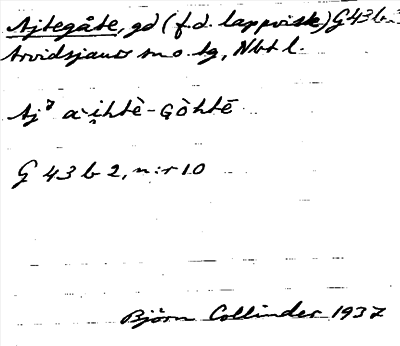 Ajtegåte, gd (f.d. lappvisk) G 43 b 2
Arvidsjaurs sn o. tg, Nbt l.
Aj⁠ᵒ a·i̯htè-Gòhtē
G 43 b 2, n:r 10
Björn Collinder 1937